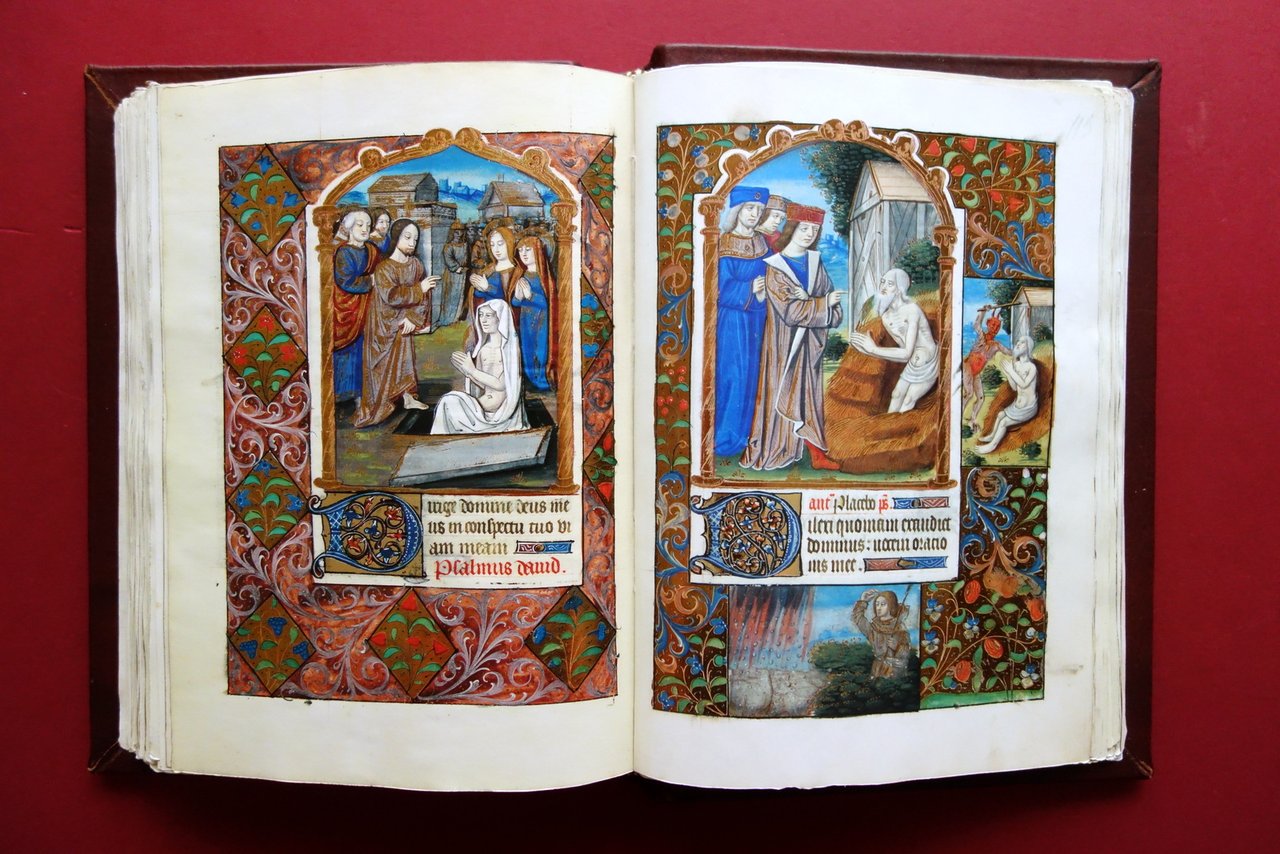 Dirige domine deus me
us in conspectu tuo vi
am meam
Psalmus david.
antᵉ Placebo ps.
Dilexi quoniam exaudiet
dominus: vocem oratio
nis mee.